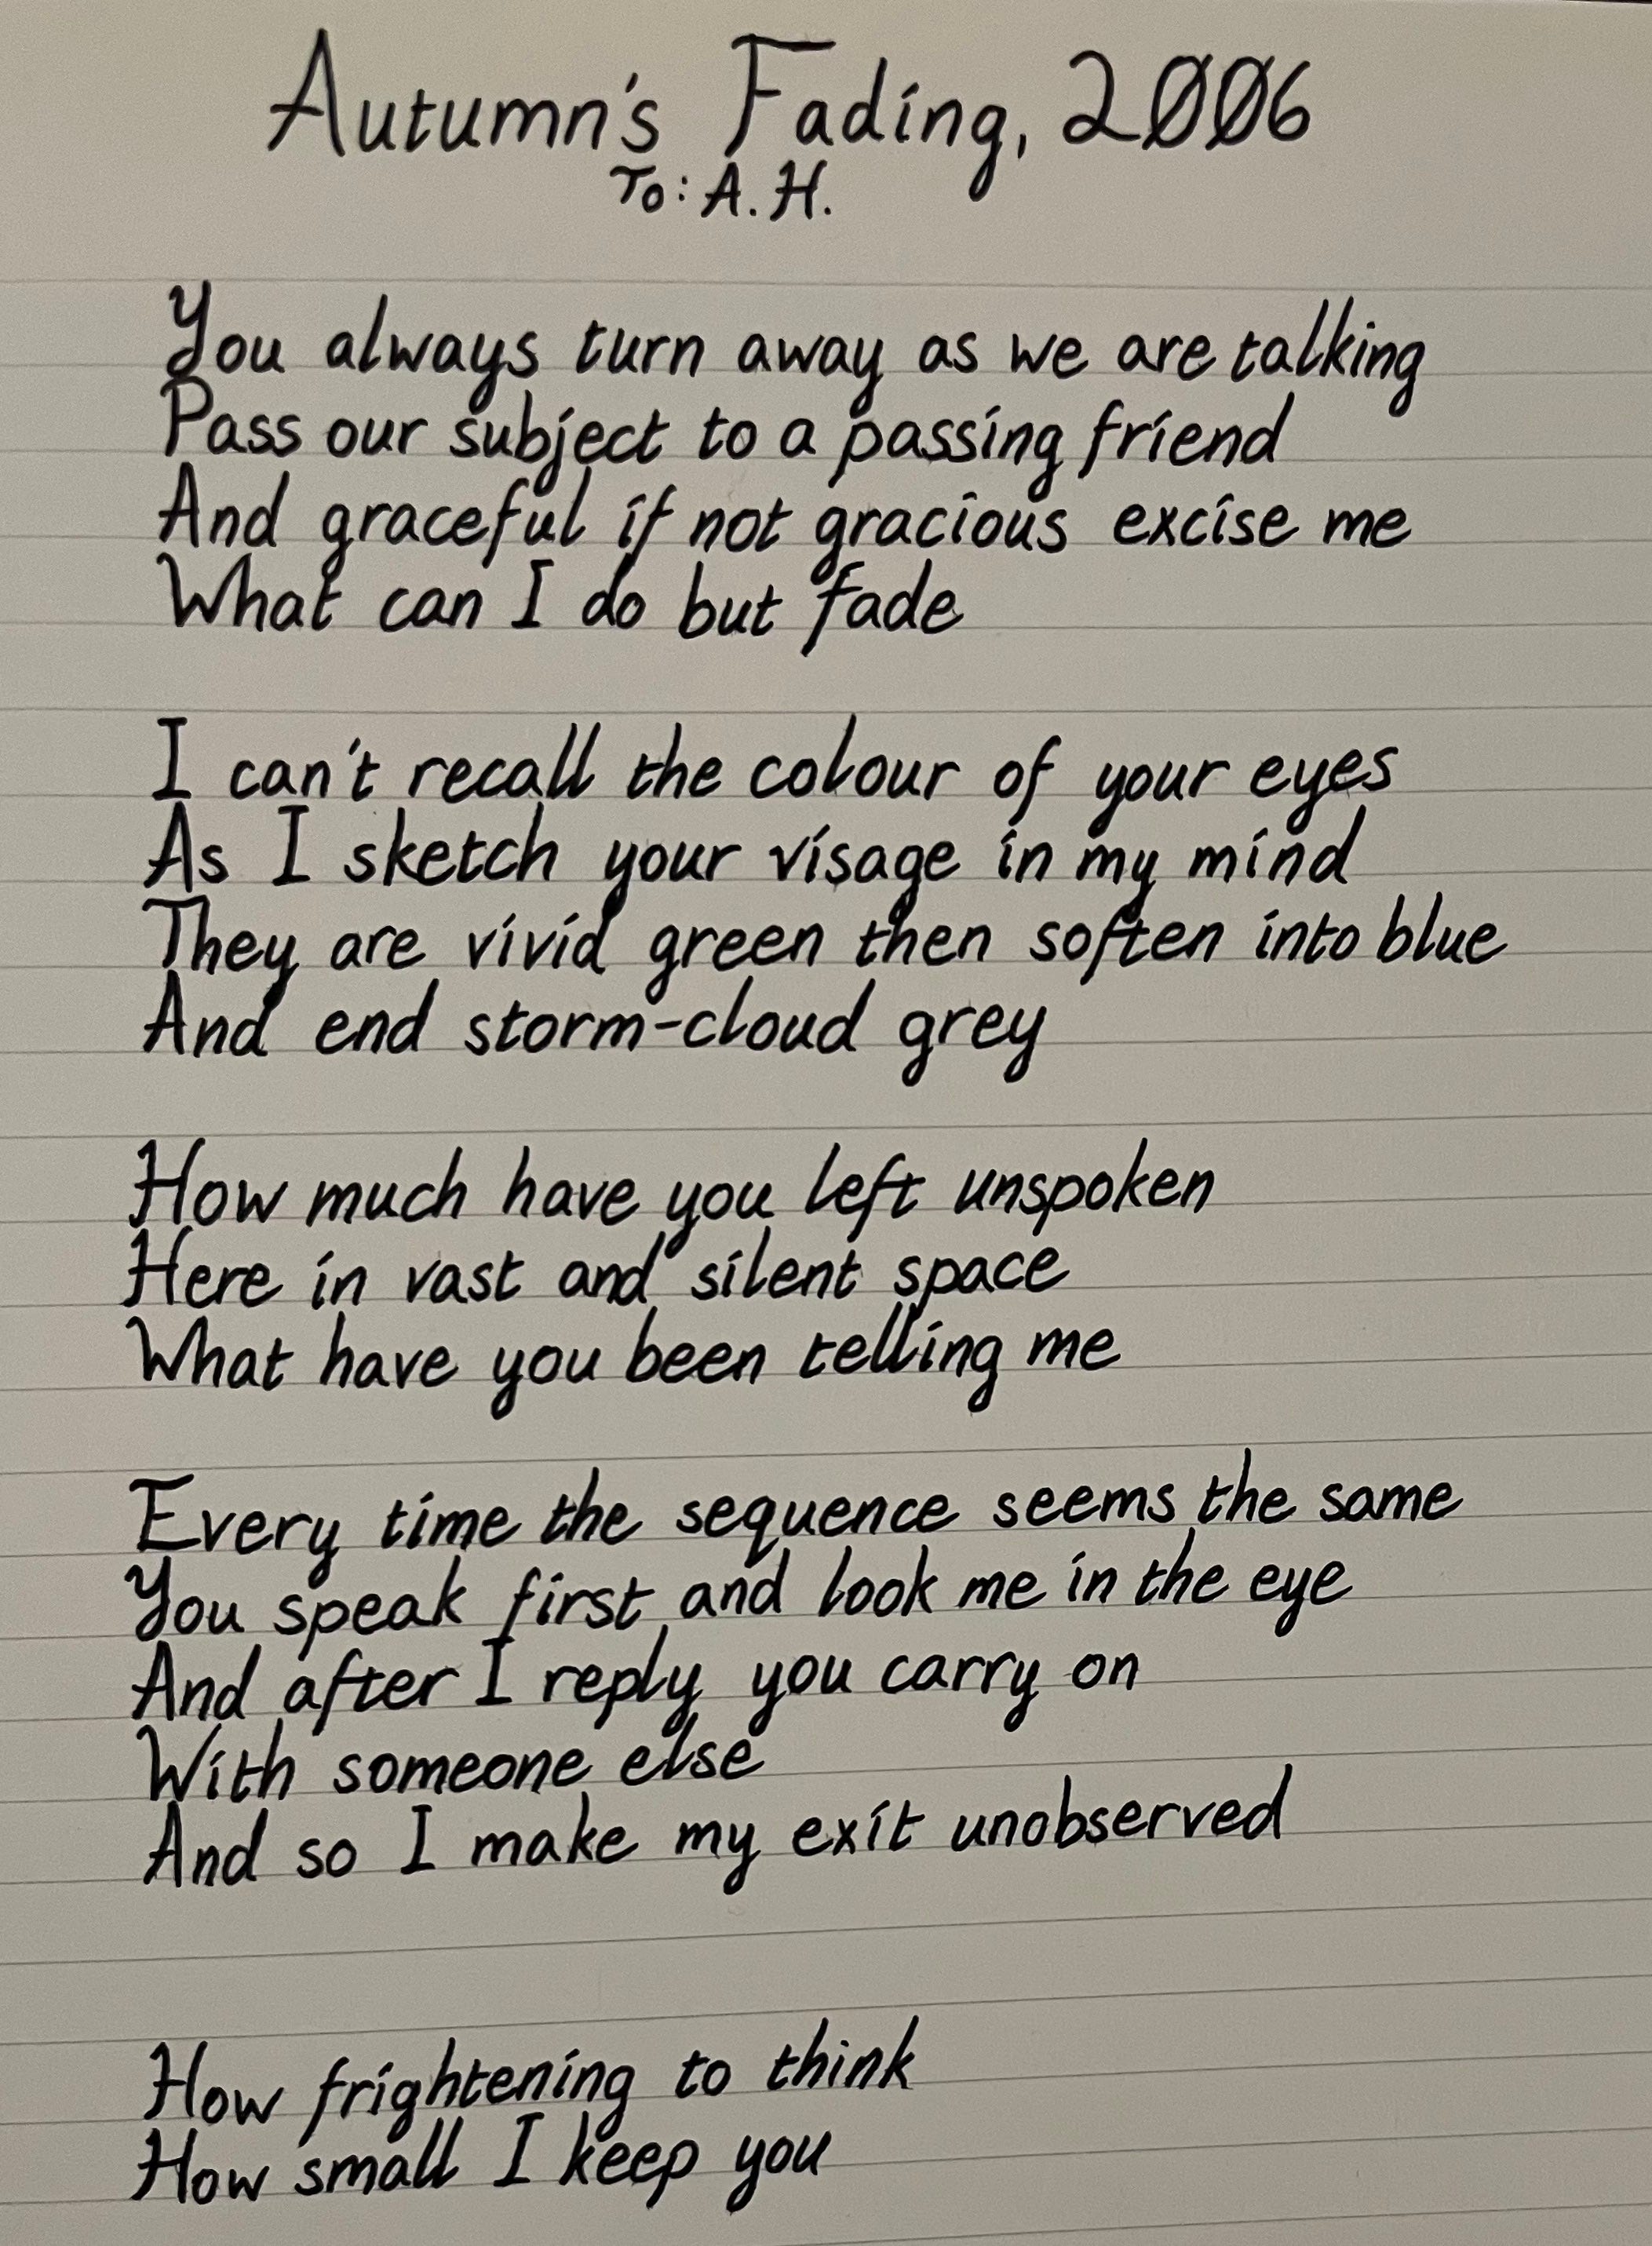 Autumn's Fading, 2006
To: A.H.
You always turn away as we are talking
Pass our subject to a passing friend
And graceful if not gracious excise me
What can I do but fade
I can't recall the colour of your eyes
As I sketch your visage in my mind
They are vivid green then soften into blue
And end storm-cloud grey
How much have you left unspoken
Here in vast and silent space
What have you been telling me
Every time the sequence seems the same
You speak first and look me in the eye
And after I reply you carry on
With someone else
And so I make my exit unobserved
How frightening to think
How small I keep you